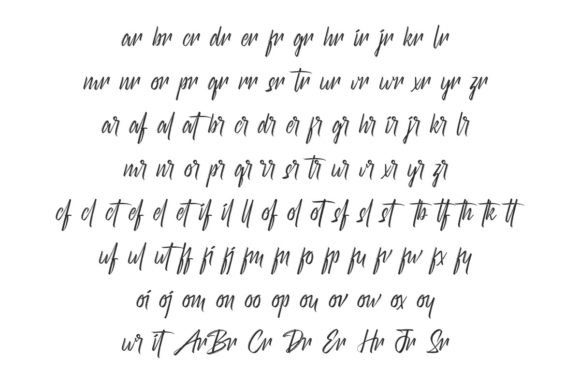 ar br cr dr er fr gr hr ir jr kr lr
mr nr or pr qr rr sr tr ur vr wr xr yr zr
ar af al at br cr dr er fr gr hr ir jr kr lr
mr nr or pr qr rr sr tr ur vr xr yr zr
cf cl ct ef el et if il ll of ol ot sf sl st tb tf th tk tt
uf ul ut ff fi fj fm fn fo fp fu fv fw fx fy
oi oj om on oo op ou ov ow ox oy
wr it Ar Br Cr Dr Er Hr Jr Sr